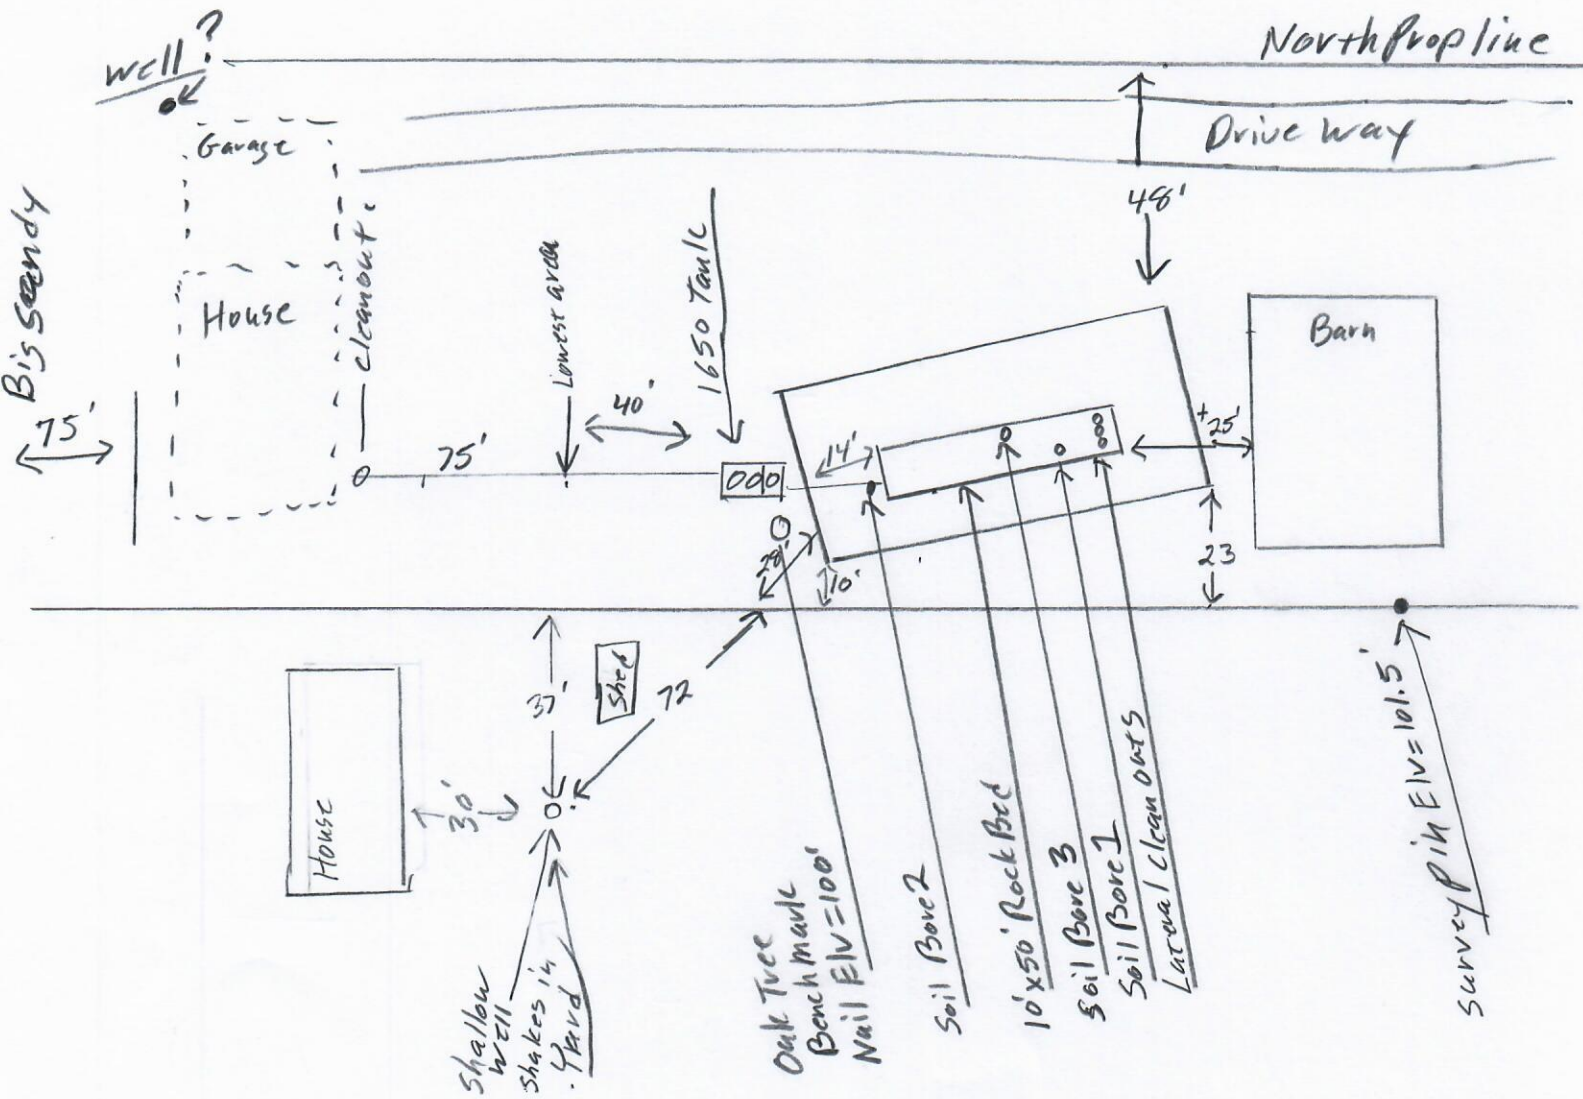 North Prop line
well?
Drive Way
Garage
48'
Big Sandy
cleanout
Lowest area
1650 Tank
House
Barn
40'
+25'
75'
75'
14'
28'
10'
23
37'
Shed
72
30'
House
Shallow
well
Shakes in
Yard
Oak Tree
Benchmark
Nail Elv=100'
Soil Bore 2
10'x50' Rock Bed
Soil Bore 3
Soil Bore 1
Lateral Clean outs
Survey Pin Elv=101.5'